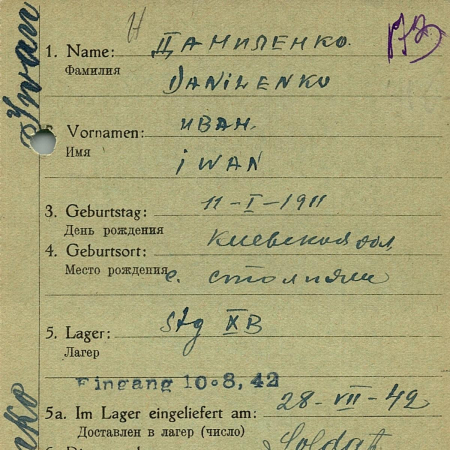 Iwan
1. Name: Даниленко.
Фамилия
DANILENKO
Vornamen: Иван.
Имя
iWAN
3. Geburtstag: 11-I-1911
День рождения
4. Geburtsort: Киевская обл,
Место рождения с.
5. Lager: Stg XB
Лагер
Eingang 10.8.42
5a. Im Lager eingeliefert am: 28-VII-42
Доставлен в лагер (число)
Soldat